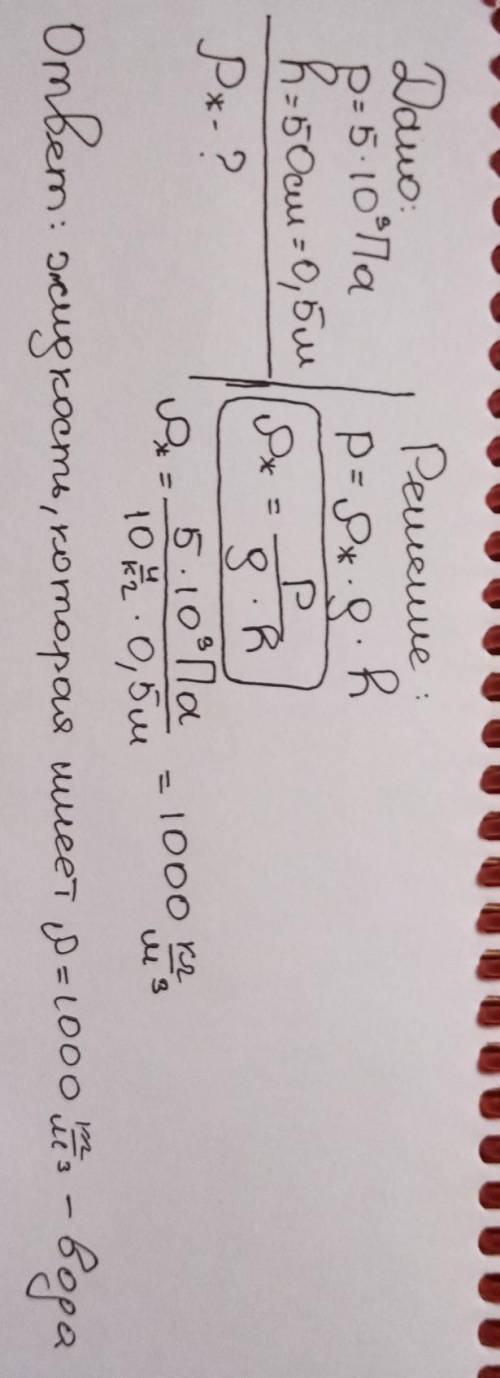 Дано:
p = 5 · 10³ Па
h = 50 см = 0,5 м
ρж - ?
Решение:
p = ρж · g · h
ρж = p / (g · h)
ρж = 5 · 10³ Па / (10 Н/кг · 0,5 м) = 1000 кг/м³
Ответ: жидкость, которая имеет ρ = 1000 кг/м³ – вода